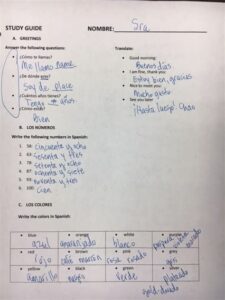 STUDY GUIDE
NOMBRE: Sra
A. GREETINGS
Answer the following questions:
¿Cómo te llamas?
Me llamo name
¿De dónde eres?
Soy de place
¿Cuántos años tienes?
Tengo # años
¿Cómo estás?
bien
Translate:
Good morning
Buenos días
I am fine, thank you
Estoy bien, gracias
Nice to meet you
Mucho gusto
See you later
¡Hasta luego! Chao
B. LOS NÚMEROS
Write the following numbers in Spanish:
1. 58 cincuenta y ocho
2. 63 sesenta y tres
3. 78 setenta y ocho
4. 87 ochenta y siete
5. 93 noventa y tres
6. 100 cien
C. LOS COLORES
Write the colors in Spanish:
blue orange white purple
azul anaranjado blanco morado
red brown pink grey
rojo café marrón rosa rosado gris
yellow black green silver
amarillo negro verde plateado
gold-dorado